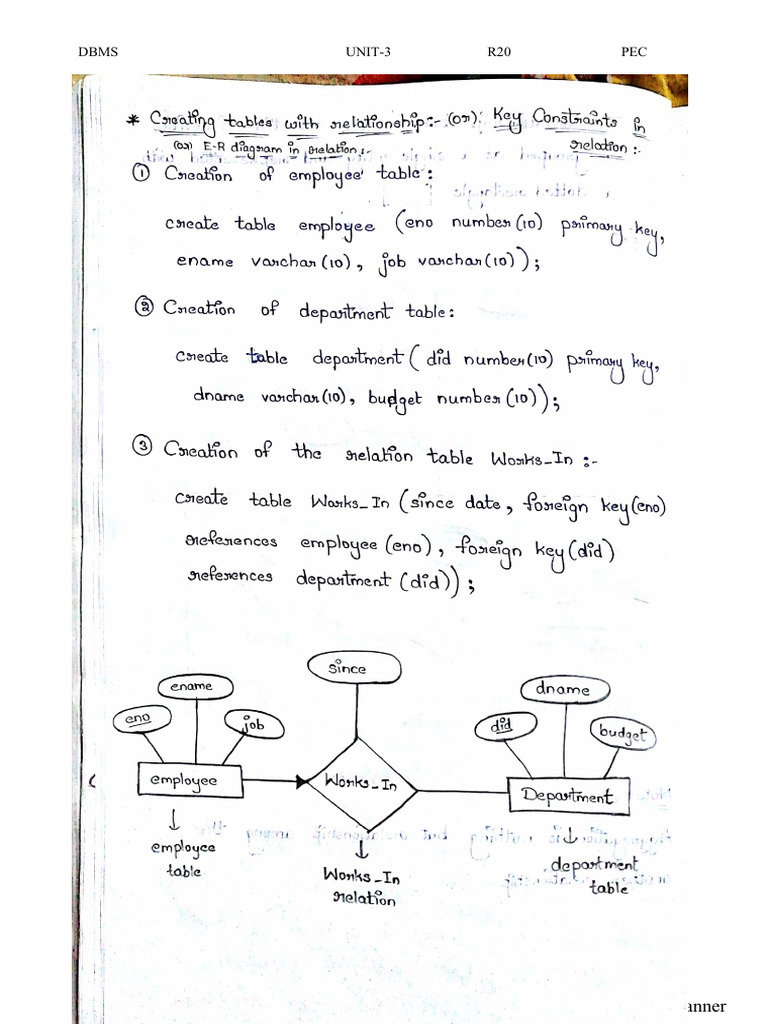 DBMS UNIT-3 R20 PEC
* Creating tables with relationship:- (or): Key Constraints in
(or) E-R diagram in relation:- relation:-
① Creation of employee table:
create table employee (eno number(10) primary key,
ename varchar(10), job varchar(10));
② Creation of department table:
create table department( did number(10) primary key,
dname varchar(10), budget number(10));
③ Creation of the relation table Works_In :-
create table Works_In (since date, foreign key(eno)
references employee(eno), foreign key(did)
references department (did));
since
ename dname
eno job did budget
employee Works_In Department
↓ ↓ ↓
employee department
table table
Works_In
relation
anner